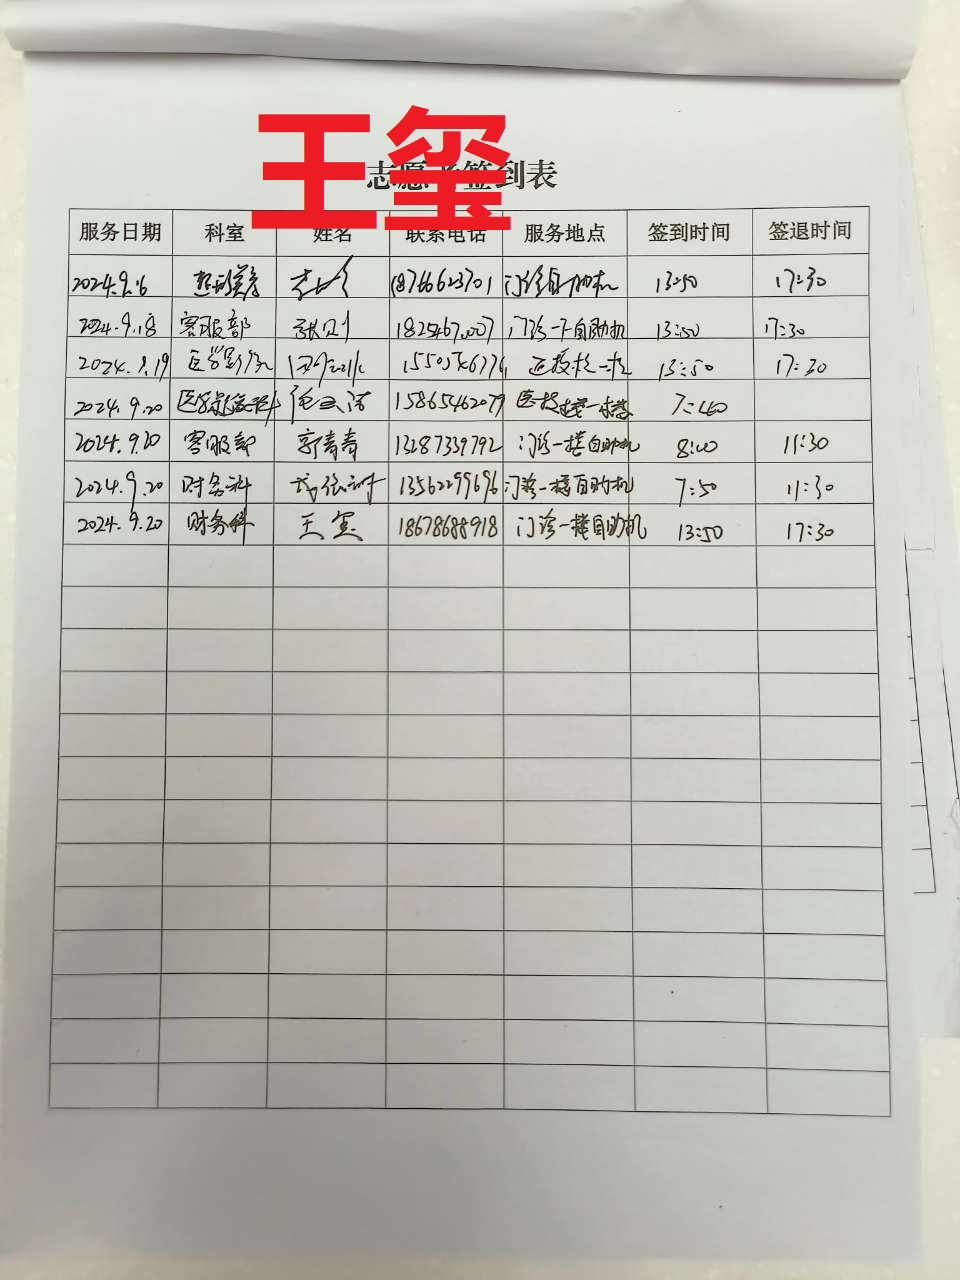 王玺
志愿者签到表
服务日期 科室 姓名 联系电话 服务地点 签到时间 签退时间
2024.9.6 18766623701 门诊自助机 13:50 17:30
2024.9.18 客服部 门诊一下自助机 13:50 17:30
2024.9.19 医学影像 13:50 17:30
2024.9.20 15865462079 7:40
2024.9.20 客服部 郭青青 13287339792 门诊一楼自助机 8:00 11:30
2024.9.20 财务科 13562299696 门诊一楼自助机 7:50 11:30
2024.9.20 财务科 王玺 18678688918 门诊一楼自助机 13:50 17:30